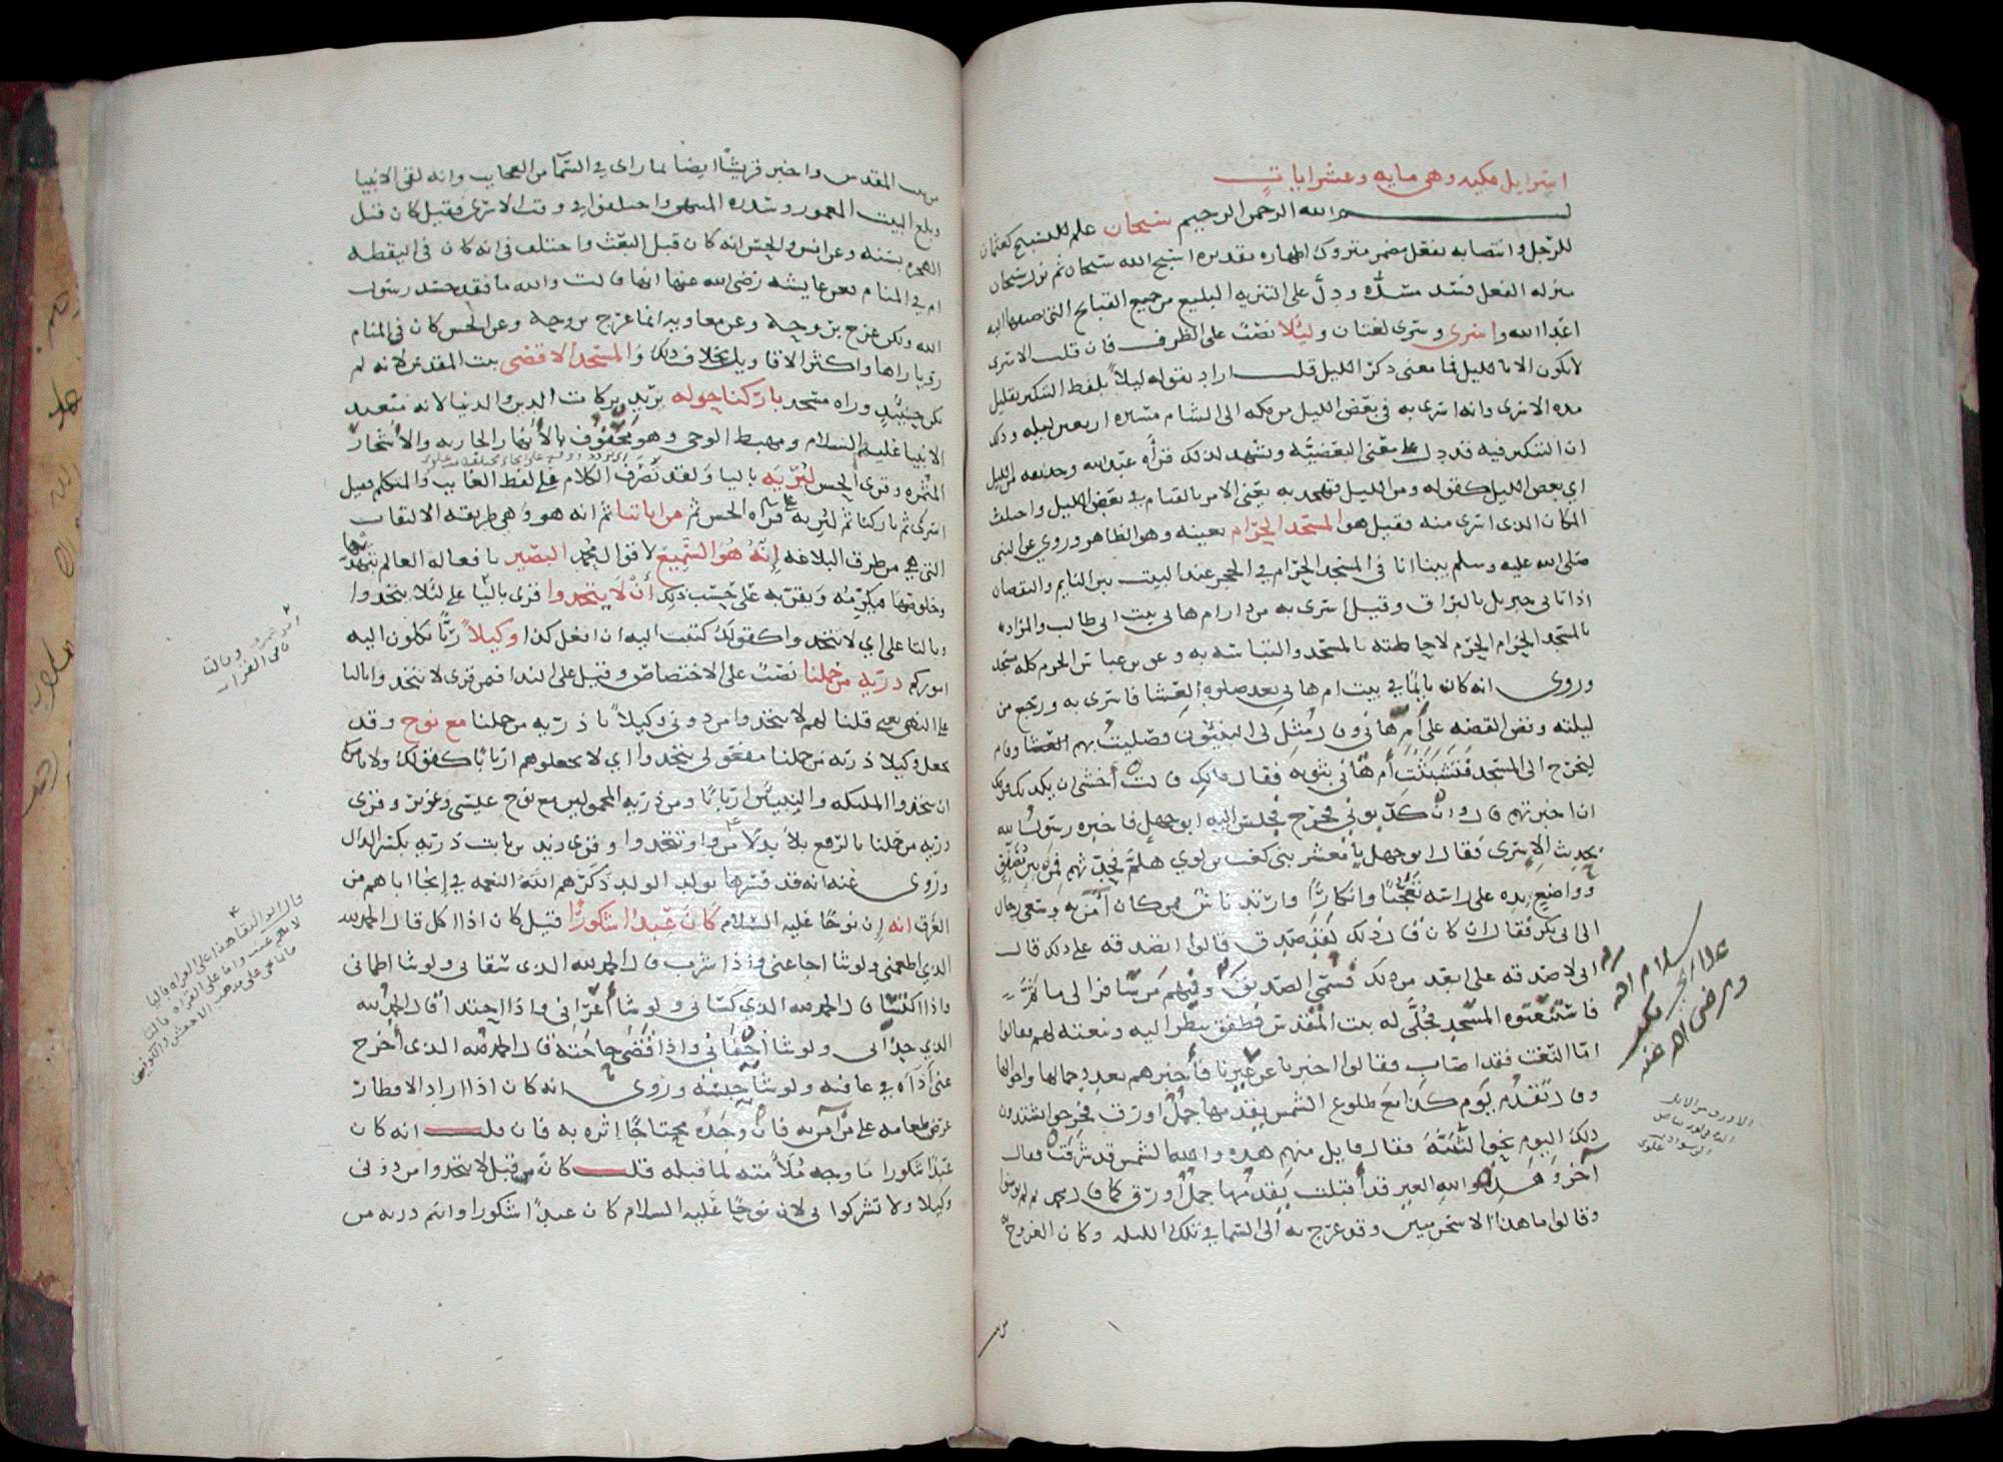 اسرايل مكيه وهي مايه وعشر ايات
بسم الله الرحمن الرحيم سبحان علم للتسبيح كعثمان
للرجل وانتصابه بفعل مضمر متروك اظهاره تقديره اسبح الله سبحان ثم نزل سبحان
منزله الفعل فسد مسده ودل على التنزيه البليغ من جميع القبايح التي اليه
اعدا الله واسرى وسرى لغتان وليلا نصب على الظرف فان قلت الاسرى
لا يكون الا بالليل فما معنى ذكر الليل قلت اراد بقوله ليلا بلفظ التنكير تقليل
مده الاسرى وانه اسرى به في بعض الليل من مكه الى الشام مسيره اربعين ليله وذلك
ان التنكير فيه قد دل على معنى البعضيه ويشهد لذلك قراه عبد الله وحذيفه من الليل
اي بعض الليل كقوله ومن الليل فتهجد به يعني الامر بالقيام في بعض الليل واختلف
المكان الذي اسرى منه فقيل هو المسجد الحرام بعينه وهو الظاهر وروي عن النبي
صلى الله عليه وسلم بينا انا في المسجد الحرام في الحجر عند البيت بين النايم واليقضان
اذ اتاني جبريل بالبراق وقيل اسرى به من دار ام هاني بنت ابي طالب والمراد
بالمسجد الحرام الحرم لاحاطته بالمسجد والتباسه به وعن بن عباس الحرم كله مسجد
وروى انه كان نايما في بيت ام هاني بعد صلوه العشا فاسرى به ورجع من
ليلته وقص القصه على ام هاني وقال مثل لي النبيون فصليت بهم وقام
ليخرج الى المسجد فتشبثت ام هاني بثوبه فقال مالك قالت اخشى ان يكذبك قومك
ان اخبرتهم قال وان كذبوني فخرج فجلس اليه ابو جهل فاخبره رسول الله
بحديث الاسرى فقال ابو جهل يا معشر بني كعب بن لوي هلم فحدثهم فمن بين مصفق
وواضع يده على راسه تعجبا وانكارا وارتد ناس ممن كان امن به وسعى رجال
الى ابي بكر فقال ان كان قال ذلك لقد صدق قالوا اتصدقه على ذلك قال
اني لاصدقه على ابعد من ذلك فسمي الصديق وفيهم من سافر الى ما ثم
فاستنعتوه المسجد فجلى له بيت المقدس فطفق ينظر اليه وينعته لهم فقالوا
اما النعت فقد اصاب فقالوا اخبرنا عن عيرنا فاخبرهم بعدد جمالها واحوالها
وقال تقدم يوم كذا مع طلوع الشمس يقدمها جمل اورق فخرجوا يشتدون
ذلك اليوم نحو الثنيه فقال قايل منهم هذه والله الشمس قد شرقت فقال
اخر وهذه والله العير قد اقبلت يقدمها جمل اورق كما قال محمد ثم لم يومنوا
وقالوا ما هذا الا سحر مبين وقد عرج به الى السما في تلك الليله وكان العروج
سلام الله
على ابي بكر
ورضي الله عنه
الاورق من الابل
من بيت المقدس واخبر قريشا ايضا بما راى في السما من العجايب وانه لقي الانبيا
وبلغ البيت المعمور وسدره المنتهى واختلفوا في وقت الاسرى فقيل كان قبل
الهجره بسنه وعن انس والحسن انه كان قبل البعث واختلف في انه كان في اليقظه
ام في المنام فعن عايشه رضي الله عنها انها قالت والله ما فقد جسد رسول
الله ولكن عرج بروحه وعن معاويه انما عرج بروحه وعن الحسن كان في المنام
رويا راها واكثر الاقاويل بخلاف ذلك والمسجد الاقصى بيت المقدس لانه لم
يكن حينيذ وراه مسجد باركنا حوله يريد بركات الدين والدنيا لانه متعبد
الانبيا عليهم السلام ومهبط الوحي وهو محفوف بالانهار الجاريه والاشجار
المثمره وقرى الحسن ليريه باليا ولقد تصرف الكلام على لفظ الغايب والمتكلم فقيل
اسرى ثم باركنا ثم ليريه على قراه الحسن ثم من اياتنا ثم انه هو وهي طريقه الالتفات
التي هي من طرق البلاغه انه هو السميع لاقوال محمد البصير بافعاله العالم بتهذبها
وخلوصها فيكرمه ويقربه على حسب ذلك ان لا يتخذوا قرى باليا على لئلا يتخذوا
وبالتا على اي لا تتخذوا كقولك كتبت اليه ان افعل كذا وكيلا ربا تكلون اليه
اموركم ذريه من حملنا نصب على الاختصاص وقيل على الندا فيمن قرى لا تتخذوا بالتا
على النهي يعني قلنا لهم لا تتخذوا من دوني وكيلا يا ذريه من حملنا مع نوح وقد
يجعل وكيلا ذريه من حملنا مفعولي يتخذوا اي لا تجعلوهم اربابا كقوله ولا يامركم
ان تتخذوا الملايكه والنبيين اربابا ومن ذريه المحمولين مع نوح عيسى وعزير وقرى
ذريه من حملنا بالرفع بدلا من واو تتخذوا وقرى زيد بن ثابت ذريه بكسر الذال
وروى عنه انه قد فسرها بولد الولد ذكرهم الله النعمه في انجا اباهم من
الغرق انه ان نوحا عليه السلام كان عبدا شكورا قيل كان اذا اكل قال الحمد لله
الذي اطعمني ولو شا اجاعني واذا شرب قال الحمد لله الذي سقاني ولو شا اظماني
واذا اكتسا قال الحمد لله الذي كساني ولو شا اعراني واذا احتذا قال الحمد لله
الذي حذاني ولو شا احفاني واذا قضى حاجته قال الحمد لله الذي اخرج
عني اذاه في عافيه ولو شا حبسه وروى انه كان اذا اراد الافطار
عرض طعامه على من امن به فان وجده محتاجا اثره به فان قلت انه كان
عبدا شكورا ما وجه ملامته لما قبله قلت كانه قيل لا تتخذوا من دوني
وكيلا ولا تشركوا بي لان نوحا عليه السلام كان عبدا شكورا وانتم ذريه من